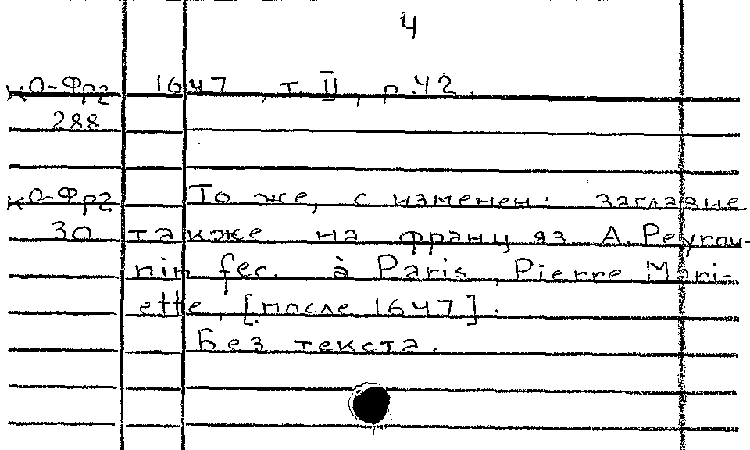 4
кО-Фр2 1647, т. II, p. 42.
288
кО-Фр2 То же, с изменен: заглавие
30 также на франц яз A. Peyrou-
nin fec. à Paris, Pierre Mari-
ette, [после 1647].
Без текста.